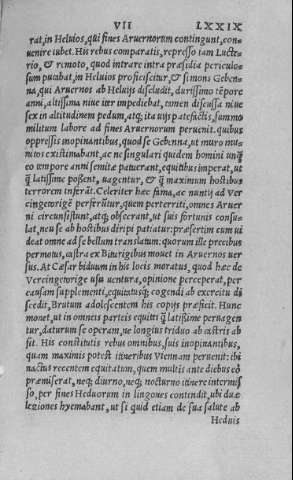 VII LXXIX
rat, in Heluios, qui fines Aruernorum contingunt, con-
uenire iubet. His rebus comparatis, represso iam Lucte-
rio, & remoto, quod intrare intra præsidia periculo-
sum putabat, in Heluios proficiscitur, & si mons Geben-
na, qui Aruernos ab Heluijs discludit, durissimo tēpore
anni, altissima niue iter impediebat, tamen discussa niue
sex in altitudinem pedum, atq; ita uijs patefactis, summo
militum labore ad fines Aruernorum peruenit. quibus
oppressis inopinantibus, quod se Gebenna, ut muro mu-
nitos existimabant, ac ne singulari quidem homini unq̄
eo tempore anni semitæ patuerant, equitibus imperat, ut
q̄ latissime possent, uagentur, & q̄ maximum hostibus
terrorem inferāt. Celeriter hæc fama, ac nuntijs ad Ver
cingetorigē perferūtur, quem perterriti, omnes Aruer
ni circunsistunt, atq; obsecrant, ut suis fortunis consu-
lat, neu se ab hostibus diripi patiatur: præsertim cum ui
deat omne ad se bellum translatum. quorum ille precibus
permotus, castra ex Biturigibus mouet in Aruernos uer
sus. At Cæsar biduum in his locis moratus, quod hæc de
Vercingetorige usu uentura, opinione perceperat, per
causam supplementi, equitatusq; cogendi ab exercitu di
scedit, Brutum adolescentem his copijs præficit. Hunc
monet, ut in omneis parteis equites q̄ latissime peruagen
tur, daturum se operam, ne longius triduo ab castris ab
sit. His constitutis rebus omnibus, suis inopinantibus,
quam maximis potest itineribus Viennam peruenit: ibi
nactus recentem equitatum, quem multis ante diebus eo
præmiserat, neq; diurno, neq; nocturno itinere intermis
so, per fines Heduorum in lingones contendit, ubi duæ
legiones hyemabant, ut si quid etiam de sua salute ab
Heduis